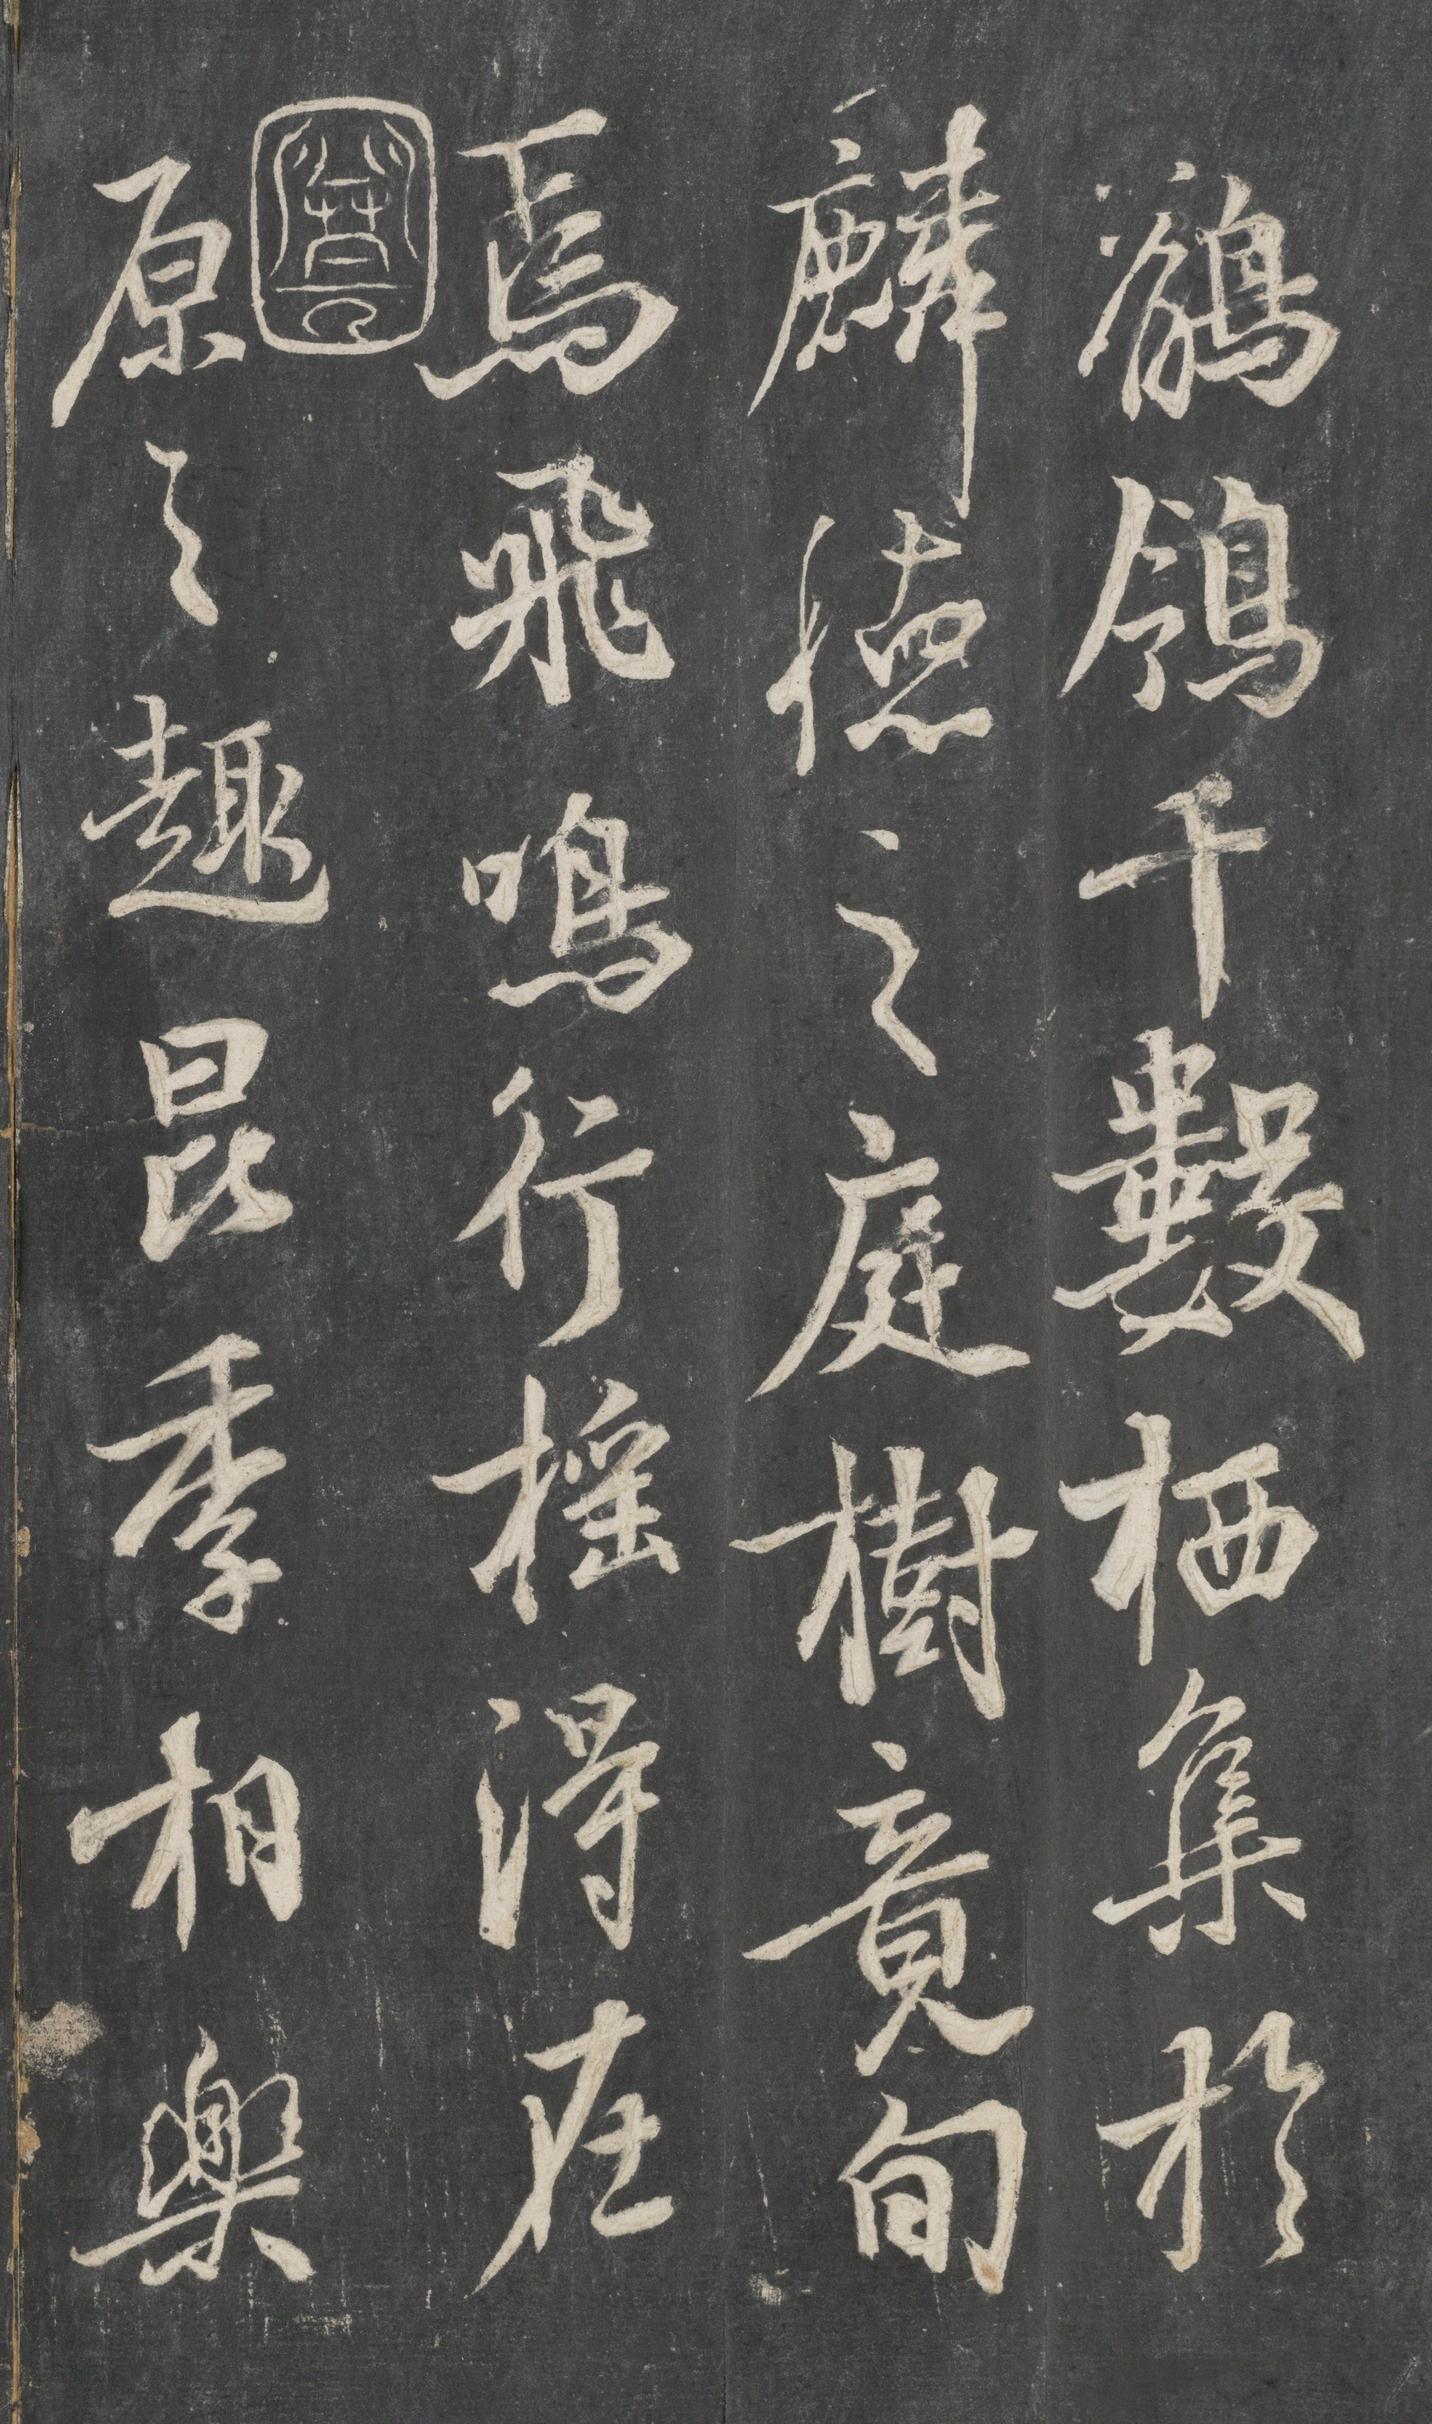 鶺鴒千數栖集於
麟德之庭樹竟旬
焉飛鳴行搖得在
原之趣昆季相樂